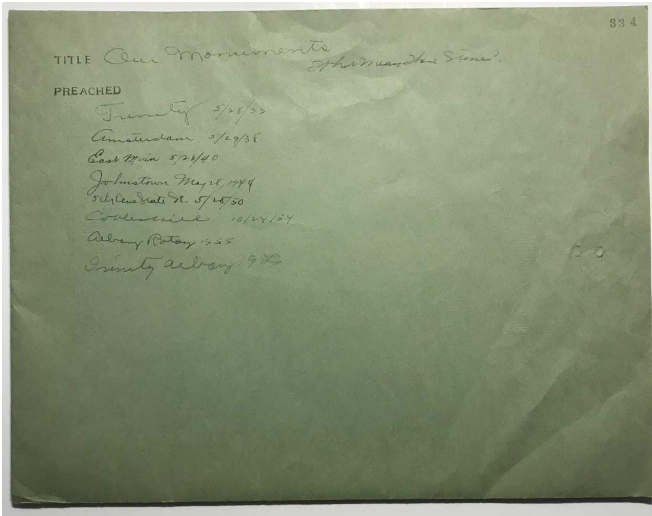 334
TITLE Our Monuments What Mean These Stones?
PREACHED
Trinity 5/28/33
Amsterdam 5/29/38
East Main 5/26/40
Johnstown May 28, 1944
5th Ave State St. 5/28/50
10/24/54
Albany Rotary 1955
Trinity Albany